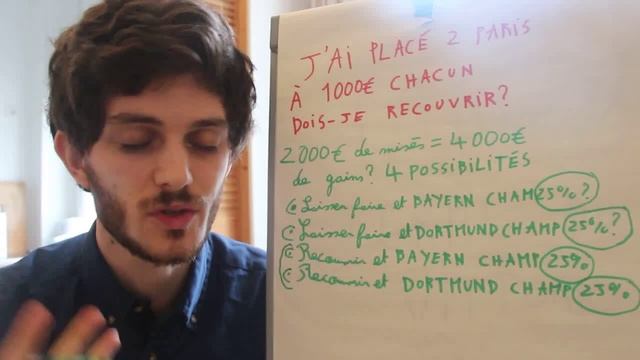 J'AI PLACÉ 2 PARIS
À 1000€ CHACUN
DOIS-JE RECOUVRIR?
2000€ de misés = 4000€
de gains? 4 POSSIBILITÉS
Laisser faire et BAYERN CHAMP 25%?
Laisser faire et DORTMUND CHAMP 25%?
Recouvrir et BAYERN CHAMP 25%
Recouvrir et DORTMUND CHAMP 25%